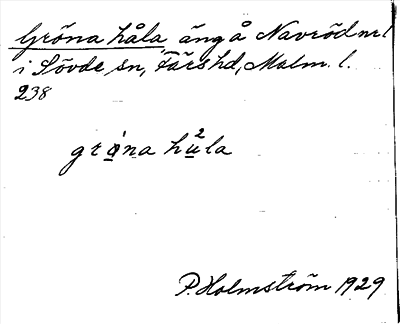 Gröna håla äng å Navröd nr 1
i Sövde sn, Färs hd, Malm. l.
238
grǿ̱na hu̱²la
P. Holmström 1929